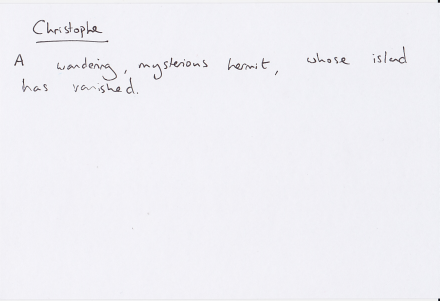 Christophe
A wandering, mysterious hermit, whose island
has vanished.